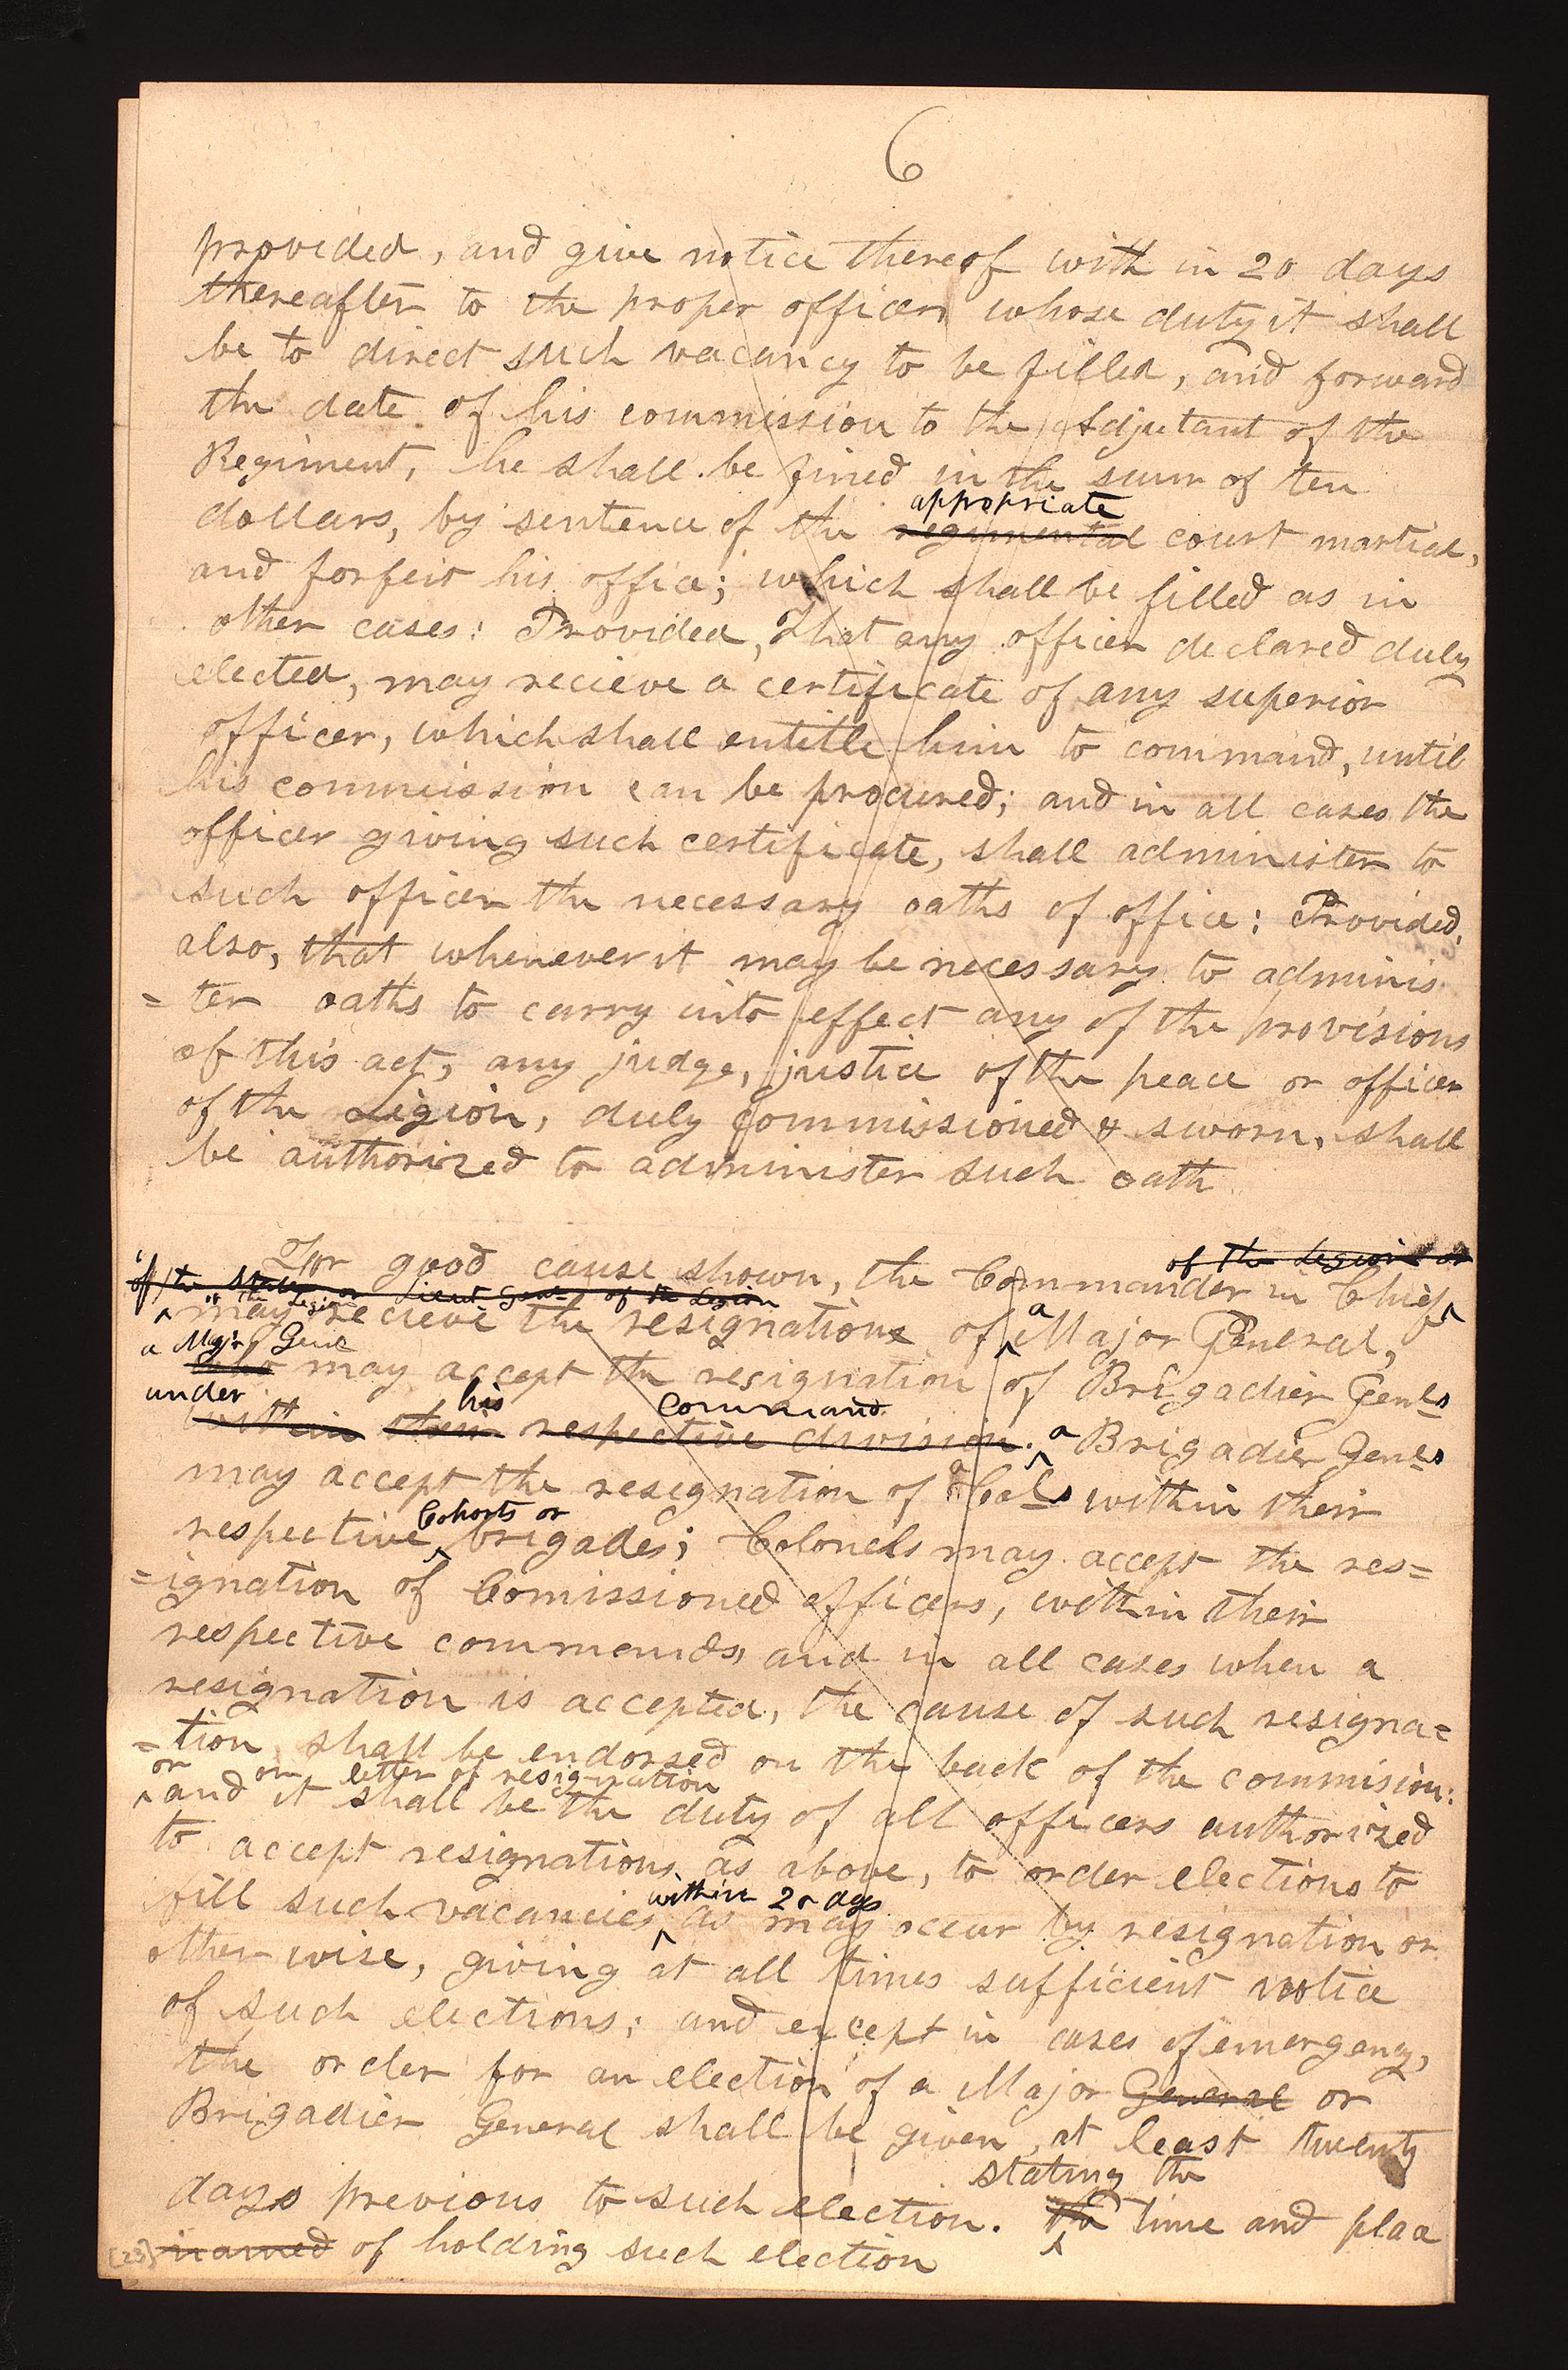 6
provided, and give notice thereof with in 20 days
thereafter to the proper officer whose duty it shall
be to direct such vacancy to be filled, and forward
the date of his commission to the Adjutant of the
Regiment, he shall be fined in the sum of ten
appropriate
dollars, by sentence of the regimental court martial,
and forfeit his office; which shall be filled as in
other cases: Provided, That any officer declared duly
elected, may recieve a certificate of any superior
officer, which shall entitle him to command, until
his commission can be procured; and in all cases the
officer giving such certificate, shall administer to
such officer the necessary oaths of office: Provided,
also, that whenever it may be necessary to adminis
=ter oaths to carry into effect any of the provisions
of this act, any judge, justice of the peace or officer
of the Legion, duly commissioned & sworn, shall
be authorized to administer such oath
of the Legion or
For good cause shown, the Commander in Chief
of the State or Lieut Genl of the Legion
of the Legion
may recieve the resignation of a Major General,
a Majr Genl
may accept the resignation of Brigadier Genls
under his command
within their respective division. a Brigadier Genls
may accept the resignation of a Cols within their
Cohorts or
respective brigades; Colonels may accept the res=
=ignation of Comissioned officers, within their
respective commands, and in all cases when a
resignation is accepted, the cause of such resigna=
=tion, shall be endorsed on the back of the commision:
or on letter of resignation
and it shall be the duty of all officers authorized
to accept resignations as above, to order elections to
within 20 days
fill such vacancies as may occur by resignation or
other wise, giving at all times sufficient notice
of such elections; and except in cases of emergency,
the order for an election of a Major General or
Brigadier General shall be given, at least twenty
stating the
days previous to such election. the time and place
[23] named of holding such election